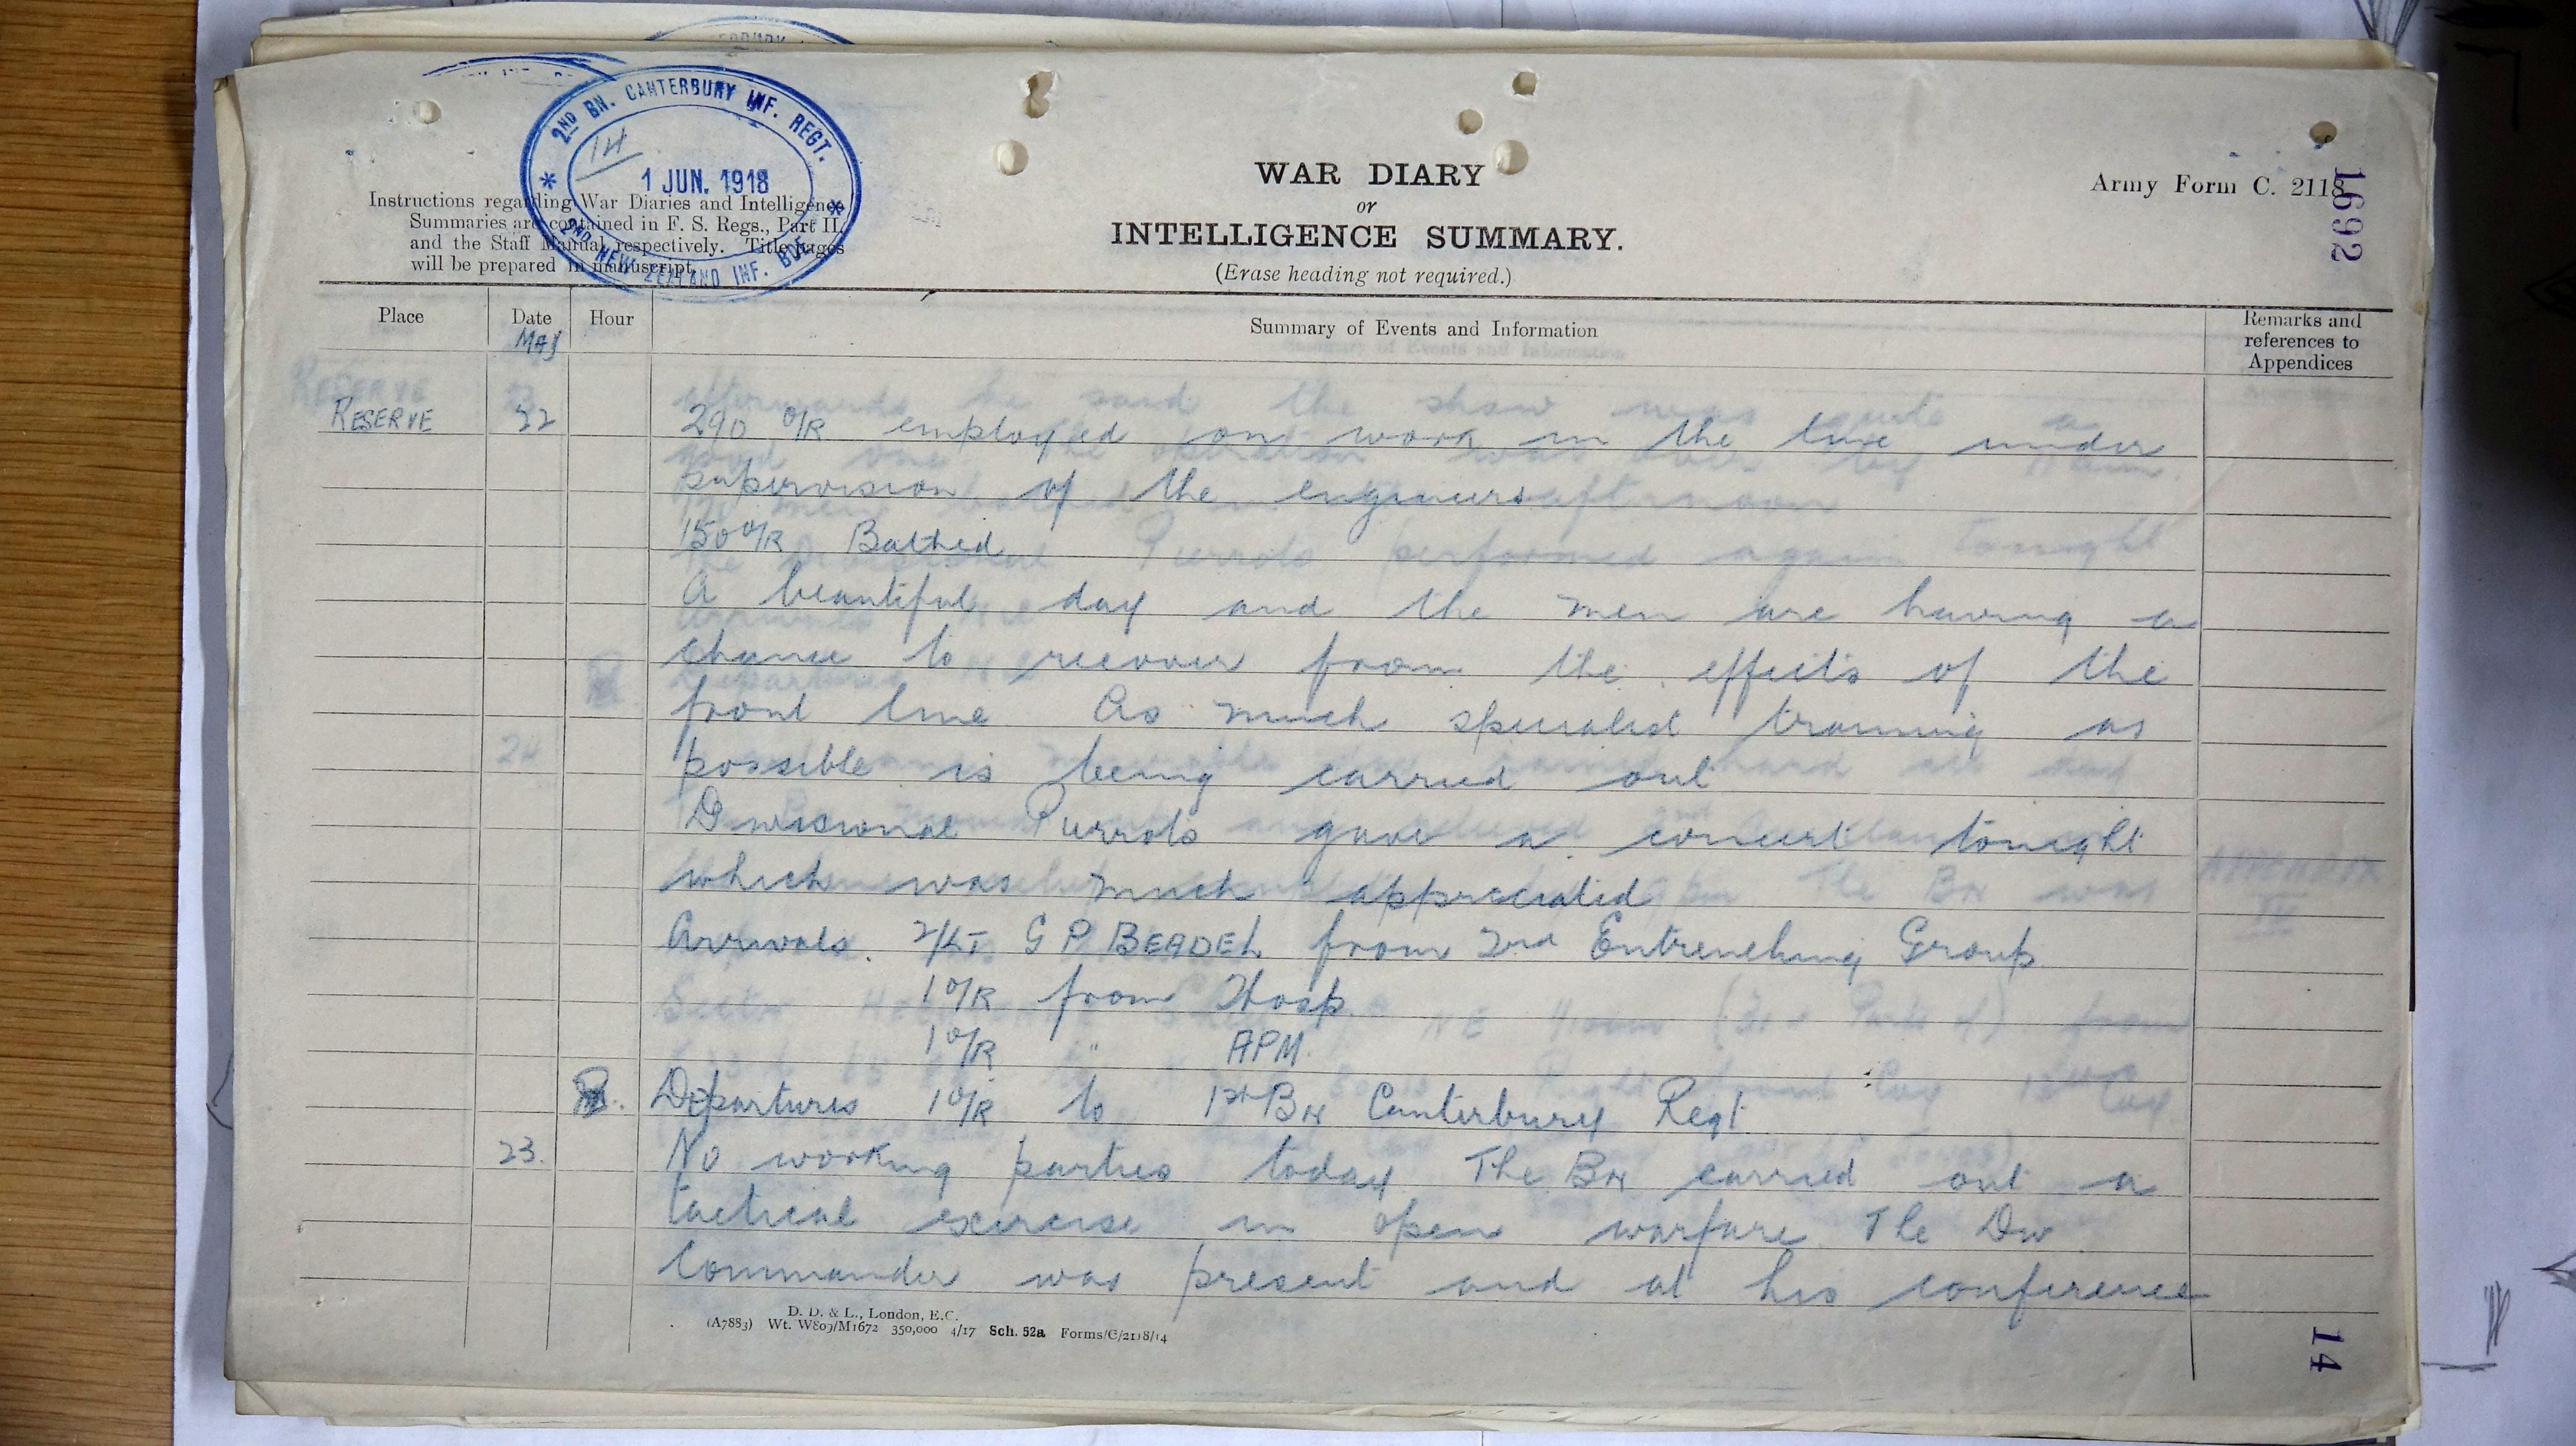 2ND BN. CANTERBURY INF. REGT.
14
1 JUN. 1918
2ND NEW ZEALAND INF. BDE.
Instructions regarding War Diaries and Intelligence
Summaries are contained in F. S. Regs., Part II,
and the Staff Manual respectively. Title pages
will be prepared in manuscript.
WAR DIARY
or
INTELLIGENCE SUMMARY.
(Erase heading not required.)
Army Form C. 2118
1692
Place Date Hour Summary of Events and Information Remarks and references to Appendices
MAY
RESERVE 22 290 O/R employed on work in the line under
supervision of the engineers
150 O/R Bathed
A beautiful day and the men are having a
chance to recover from the effects of the
front line As much specialist training as
possible is being carried out
Divisional Pierrots gave a concert tonight
which was much appreciated
Arrivals. 2/LT G P BEADEL from 2nd Entrenching Group
1 O/R from Hosp.
1 O/R " APM.
Departures 1 O/R to 1st BN Canterbury Regt.
23. No working parties today The BN carried out a
tactical exercise in open warfare. The Div
Commander was present and at his conference
D. D. & L., London, E.C.
(A7883) Wt. W809/M1672 350,000 4/17 Sch. 52a Forms/C/2118/14
14